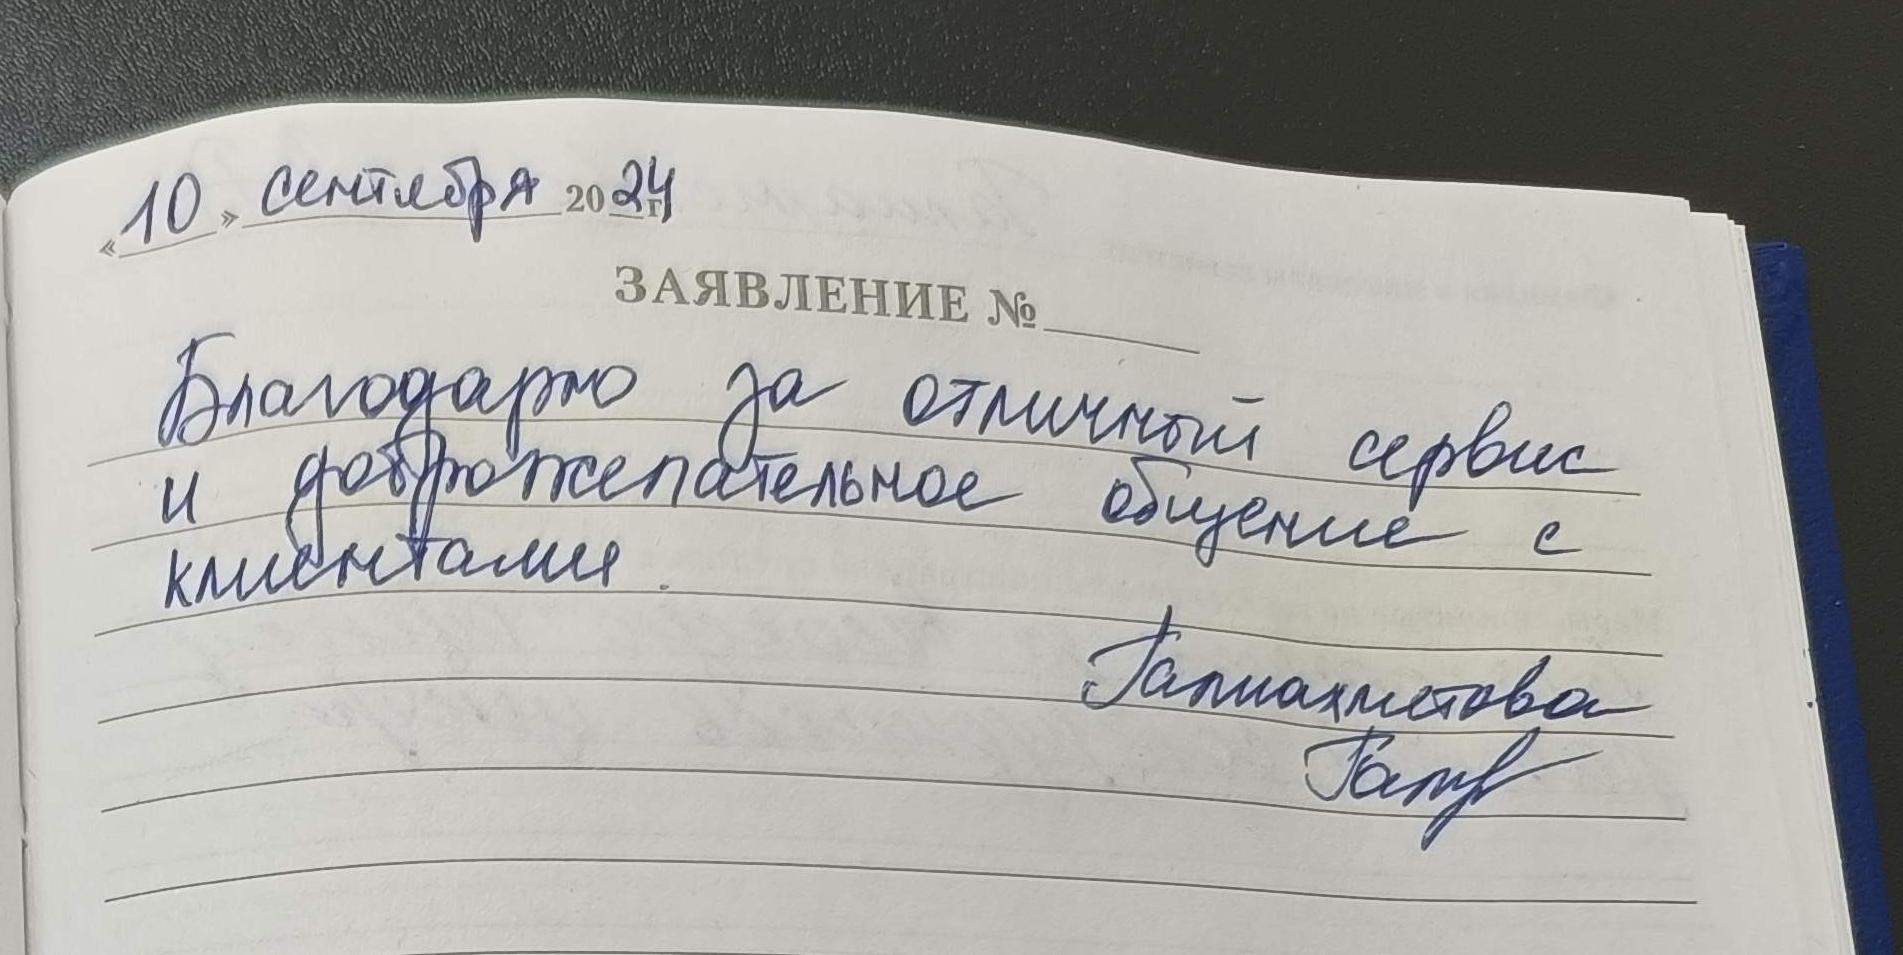 «10» сентября 2024 г.
ЗАЯВЛЕНИЕ №
Благодарю за отличный сервис
и доброжелательное общение с
клиентами.
Галиахметова